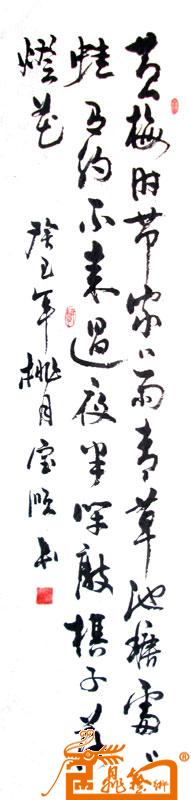 黄梅时节家〻雨青草池塘處〻
蛙有约不来過夜半闲敲棋子落
燈花
癸巳年桃月宝顺书